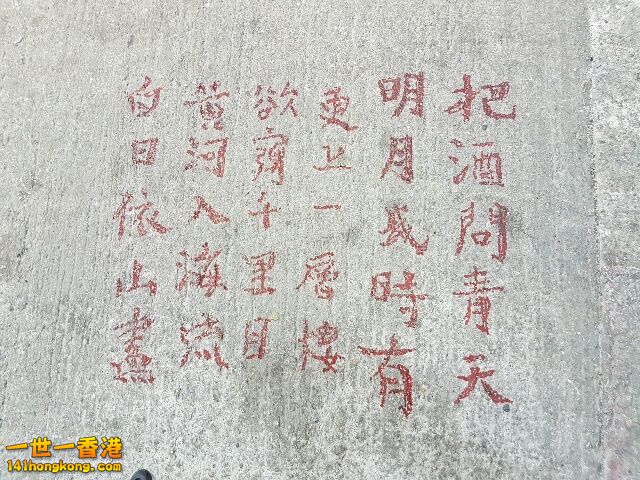 白日依山盡
黃河入海流
欲窮千里目
更上一層樓
明月幾時有
把酒問青天
一世一香港
141hongkong.com